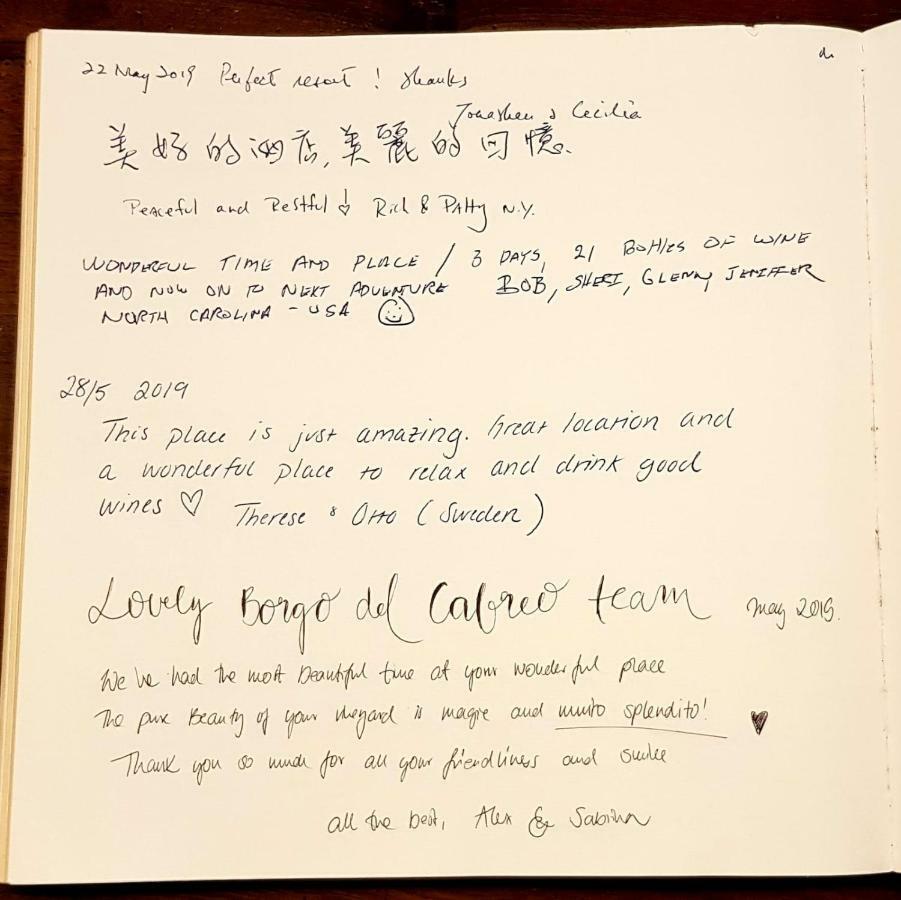 22 May 2019 Perfect resort ! thanks
Jonathan & Cecilia
美好的酒店,美麗的回憶.
Peaceful and Restful Rich & Patty N.Y.
WONDERFUL TIME AND PLACE / 3 DAYS, 21 BOTTLES OF WINE
AND NOW ON TO NEXT ADVENTURE BOB, SHERI, GLENN, JENIFFER
NORTH CAROLINA - USA
28/5 2019
This place is just amazing. Great location and
a wonderful place to relax and drink good
wines ♡ Therese & Otto (Sweden)
Lovely Borgo del Cabreo team may 2019.
We've had the most beautiful time at your wonderful place
The pure Beauty of your vineyard is magic and muito splendito! ♥
Thank you so much for all your friendliness and smile
all the best, Alex & Sabina